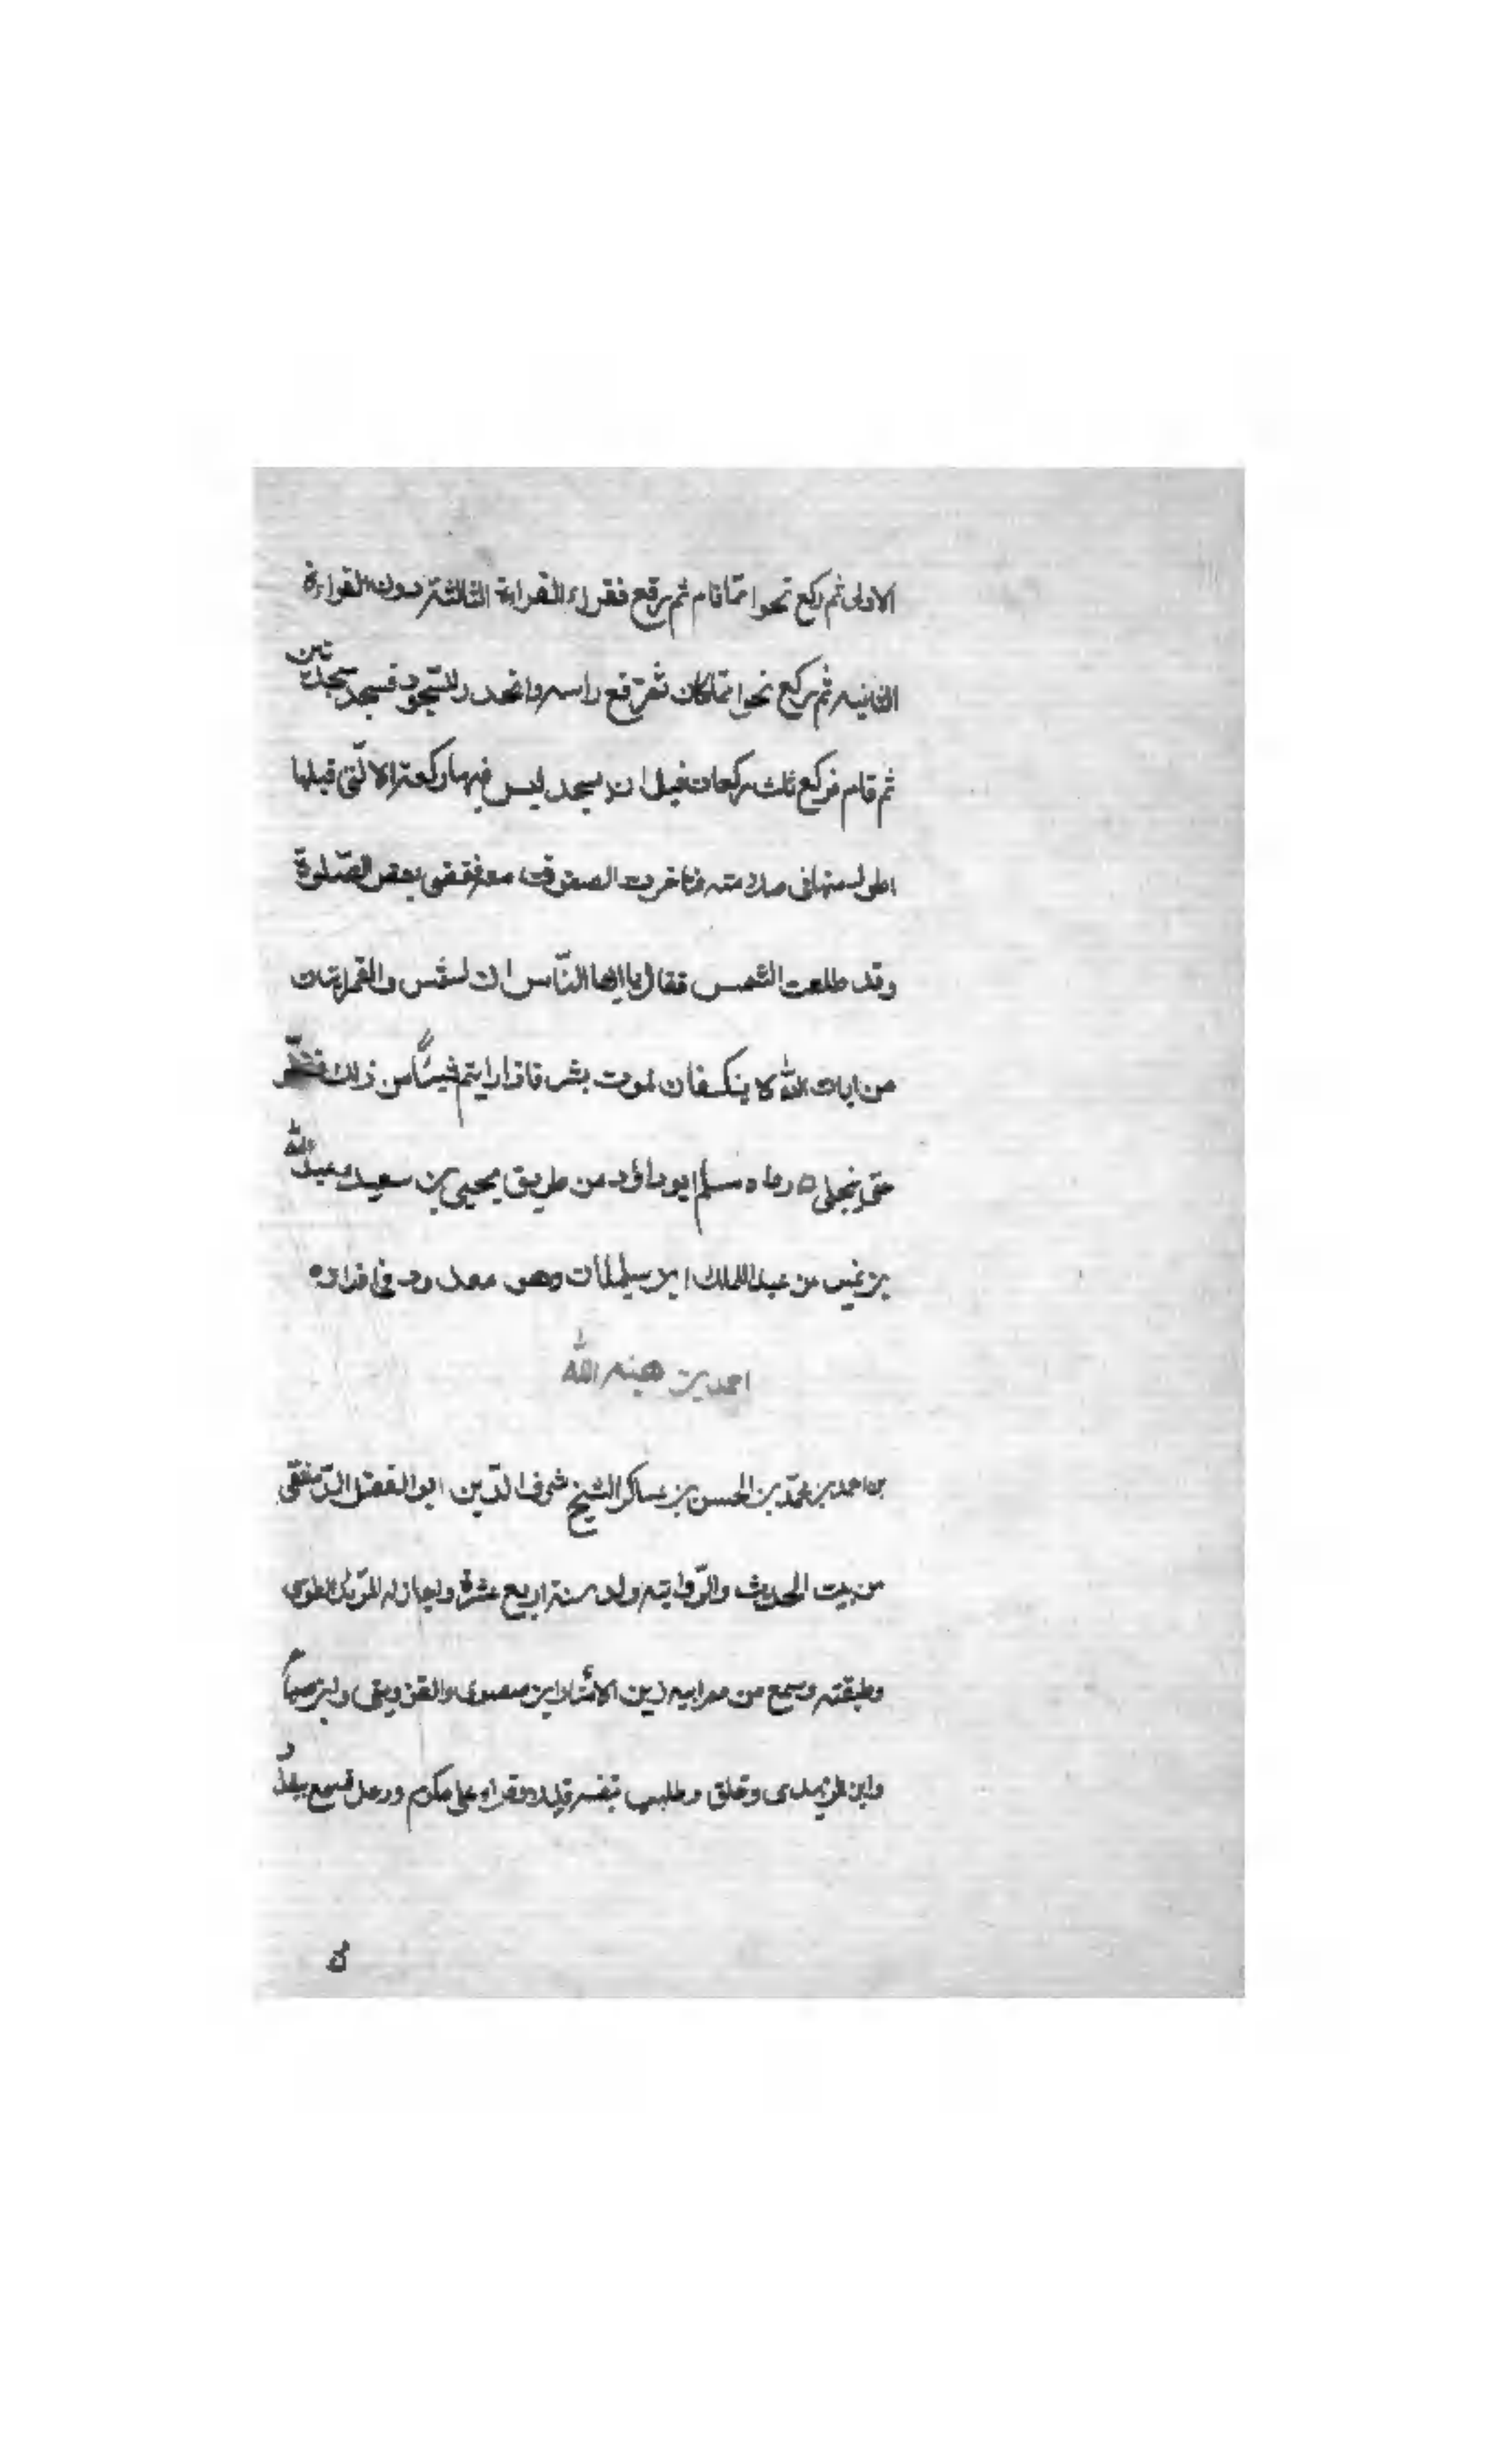 الاولى ثم ركع نحوا مما قام ثم رفع فقراء القراءة الثالثة دون القراءة
الثانيه ثم ركع نحوا مما كان ثم رفع راسه وانحدر للسجود فسجد سجدتين
ثم قام فركع ثلث ركعات قبل ان يسجد ليس فيها ركعة الا الّتى قبلها
اطول منها فى صلاته فتاخرت الصفوف معه فقضى بعض الصّلوة
وقد طلعت الشمس فقال يا ايها النّاس ان الشمس والقمر ايتان
من ايات الله لا ينكسفان لموت بشر فاذا رايتم شيئًا من ذلك
حتى ينجلى رواه مسلم ابو داؤد من طريق يحيى بن سعيد وعبد الله
بن نمير عن عبد الملك ابن سليمان وهو معدود فى افراده
احمد بن هبة الله
بن احمد بن محمّد بن الحسن بن عساكر الشيخ شرف الدّين ابو الفضل الدّمشقى
من بيت الحديث والرّواية ولد سنة اربع عشرة واجاز له المؤيد الطوسى
وطبقته وسمع من عم ابيه زين الامناء وابن صصرى والقزوينى وابن صباح
وابن الزبيدى وخلق وطلب بنفسه قليلا وقراء على مكرم ورحل فسمع